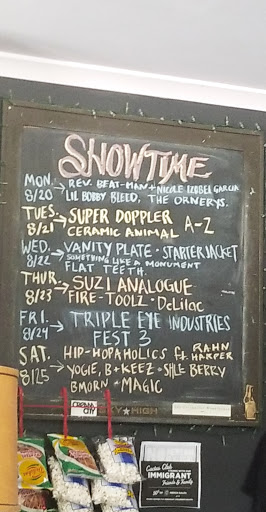 SHOWTIME
MON. 8/20 → REV. BEAT-MAN + NICOLE IZOBEL GARCIA
LIL BOBBY BLEED, THE ORNERYS.
TUES. 8/21 → SUPER DOPPLER
CERAMIC ANIMAL A-Z
WED. 8/22 → VANITY PLATE · STARTER JACKET
SOMETHING LIKE A MONUMENT
FLAT TEETH.
THUR. 8/23 → SUZI ANALOGUE
FIRE-TOOLZ · DcLilac
FRI. 8/24 → TRIPLE EYE INDUSTRIES
FEST 3
SAT. 8/25 → HIP-HOPAHOLICS ft. RAHN HARPER
YOGIE, B + KEEZ · SHLE BERRY
BMORN ★ MAGIC
CREAM CITY
SKY ★ HIGH
Cactus Club
IMMIGRANT
Friends & Family